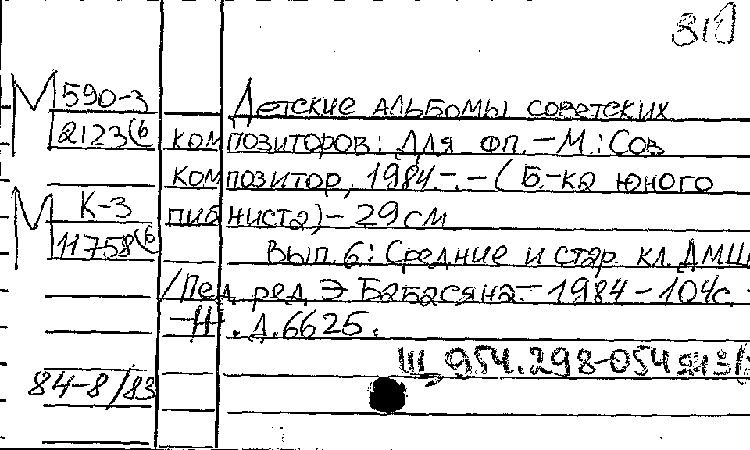 810
М 590-3
2123(6
Детские альбомы советских
композиторов: Для фп. – М.: Сов
композитор, 1984 –. – (Б-ка юного
М К-3
11758(6
пианиста) – 29 см
Вып. 6: Средние и стар кл. ДМШ
/Пед. ред. Э. Бабасяна. – 1984 – 104с.
–Н. Д. 6625.
Щ 954.298-054
84-8/83